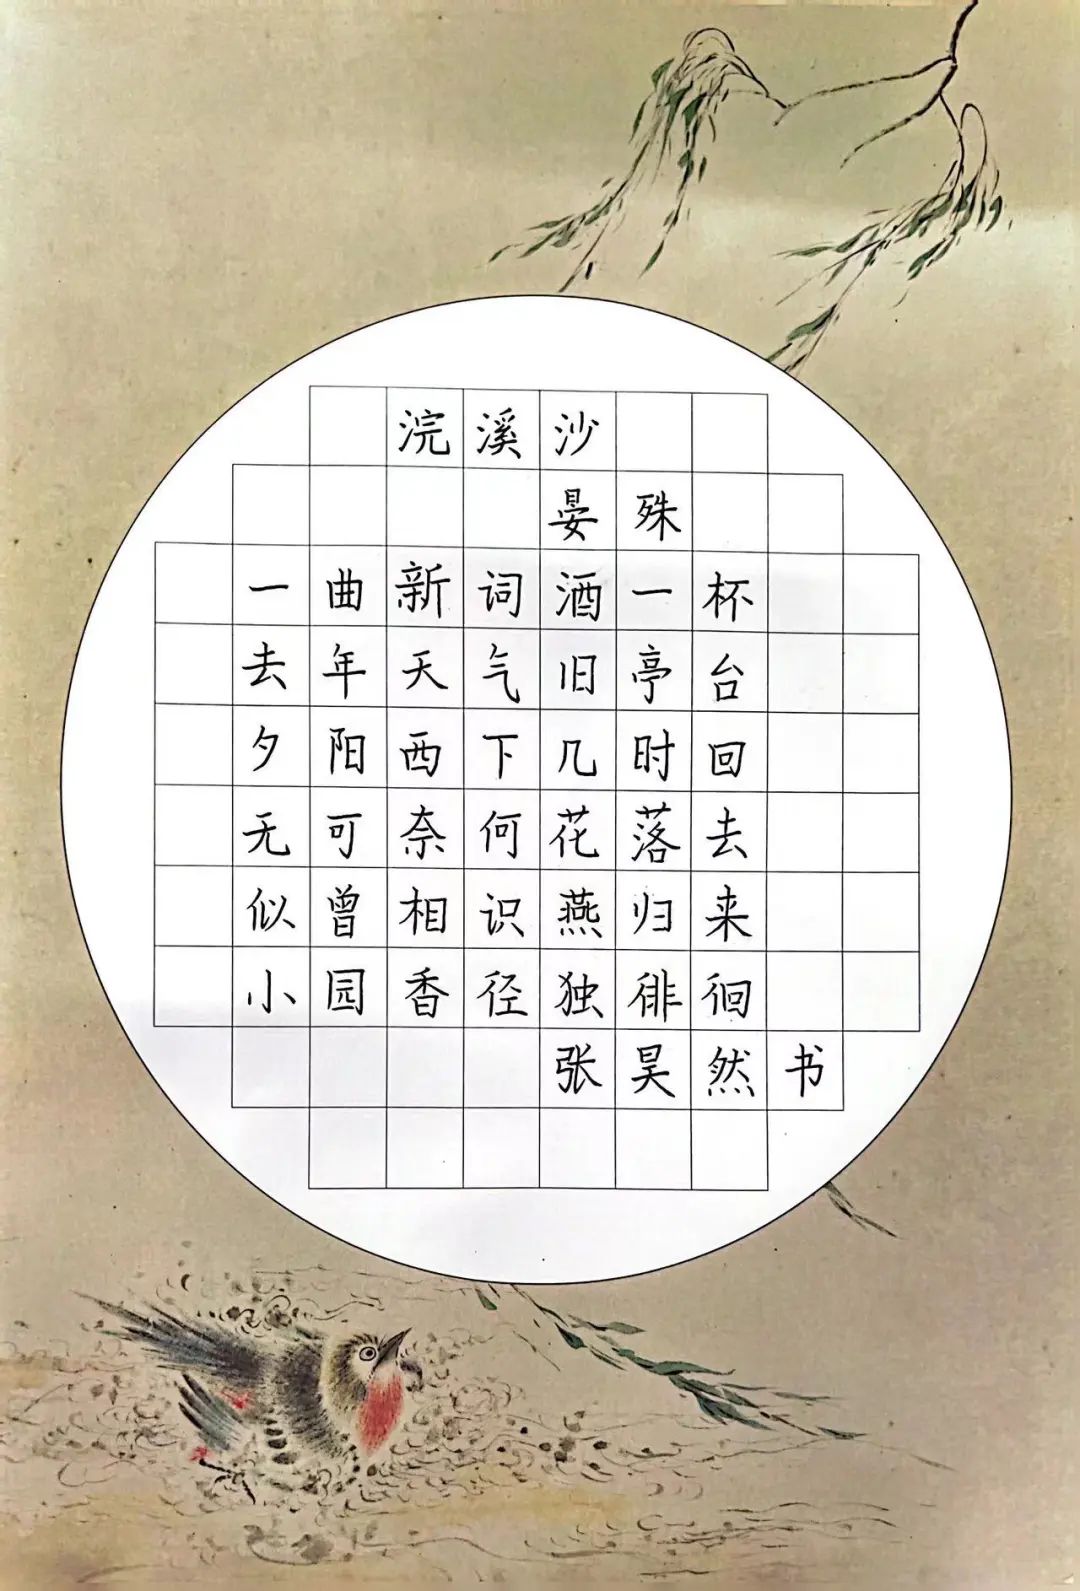 浣溪沙
晏殊
一曲新词酒一杯
去年天气旧亭台
夕阳西下几时回
无可奈何花落去
似曾相识燕归来
小园香径独徘徊
张昊然书